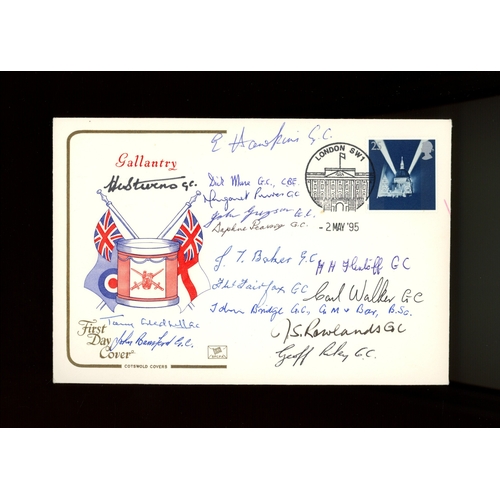 E Hawkins G.C.
Gallantry
H Stevens GC.
Dick Moss G.C., CBE.
Margaret Purves GC
John Gregson G.C.
Daphne Pearson G.C.
LONDON SW1
- 2 MAY '95
J. T. Baker G.C.
H H Flintoff GC
F H Fairfax GC
Carl Walker G.C
John Bridge G.C., G.M & Bar, B.Sc.
J S. Rowlands GC
Geoff Riley G.C.
Tony Gledhill GC
First Day Cover
John Bamford G.C.
COTSWOLD COVERS